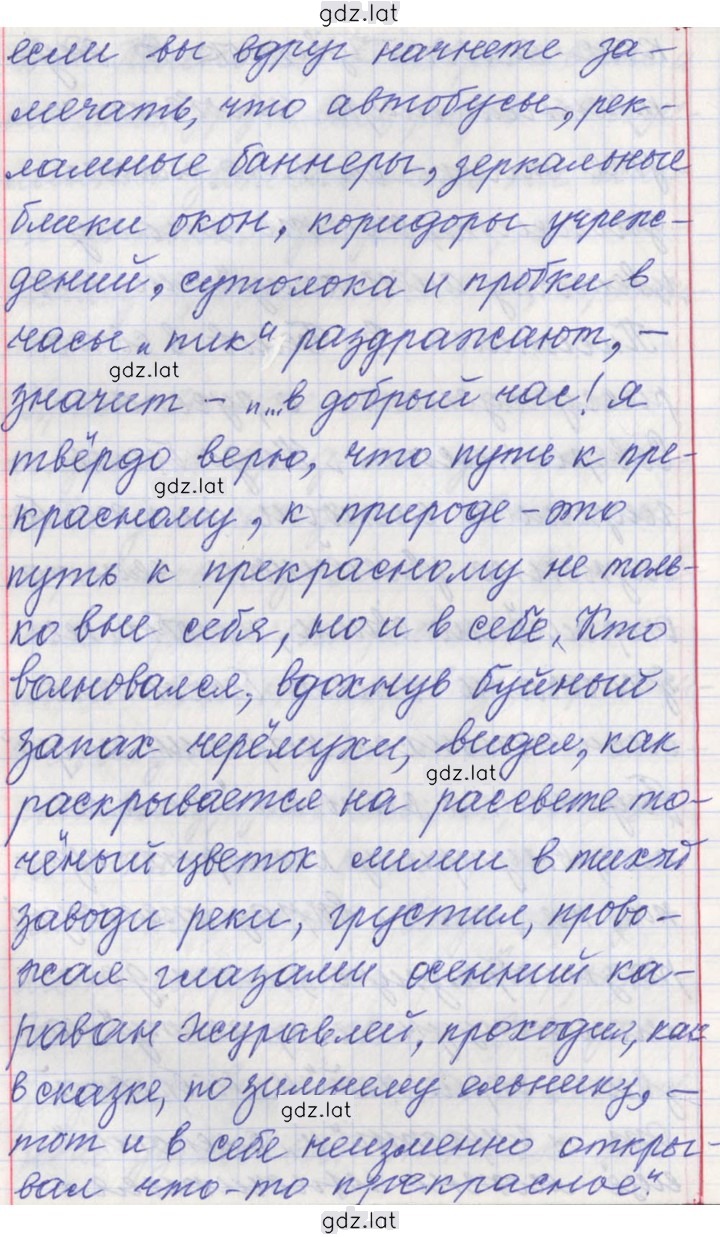 gdz.lat
если вы вдруг начнете за-
мечать, что автобусы, рек-
ламные баннеры, зеркальные
блики окон, коридоры учреж-
дений, сутолока и пробки в
часы „пик“ раздражают, –
gdz.lat
значит – „...в добрый час! Я
твёрдо верю, что путь к пре-
gdz.lat
красному, к природе – это
путь к прекрасному не толь-
ко вне себя, но и в себе. Кто
волновался, вдохнув буйный
запах черёмухи, видел, как
gdz.lat
раскрывается на рассвете то-
чёный цветок лилии в тихой
заводи реки, грустил, прово-
жая глазами осенний ка-
раван журавлей, проходил, как
в сказке, по зимнему ельнику, –
gdz.lat
тот и в себе неизменно откры-
вал что-то прекрасное“.
gdz.lat